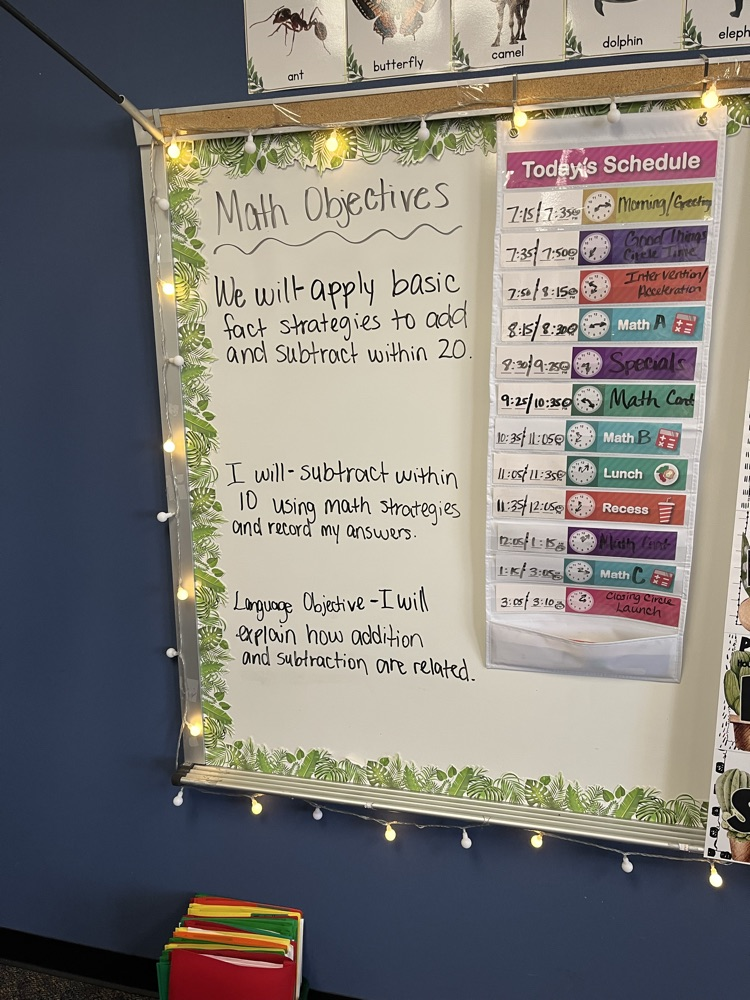 ant
butterfly
camel
dolphin
Math Objectives
We will-apply basic
fact strategies to add
and subtract within 20.
I will-subtract within
10 using math strategies
and record my answers.
Language Objective-I will
explain how addition
and subtraction are related.
Today's Schedule
7:15/7:35 Morning/Greeting
7:35/7:50 Good Things
Circle Time
7:50/8:15 Intervention/
Acceleration
8:15/8:30 Math A
8:30/9:25 Specials
9:25/10:35 Math Cont
10:35/11:05 Math B
11:05/11:35 Lunch
11:35/12:05 Recess
12:05/1:15 Math Cont
1:15/3:05 Math C
3:05/3:10 Closing Circle
Launch